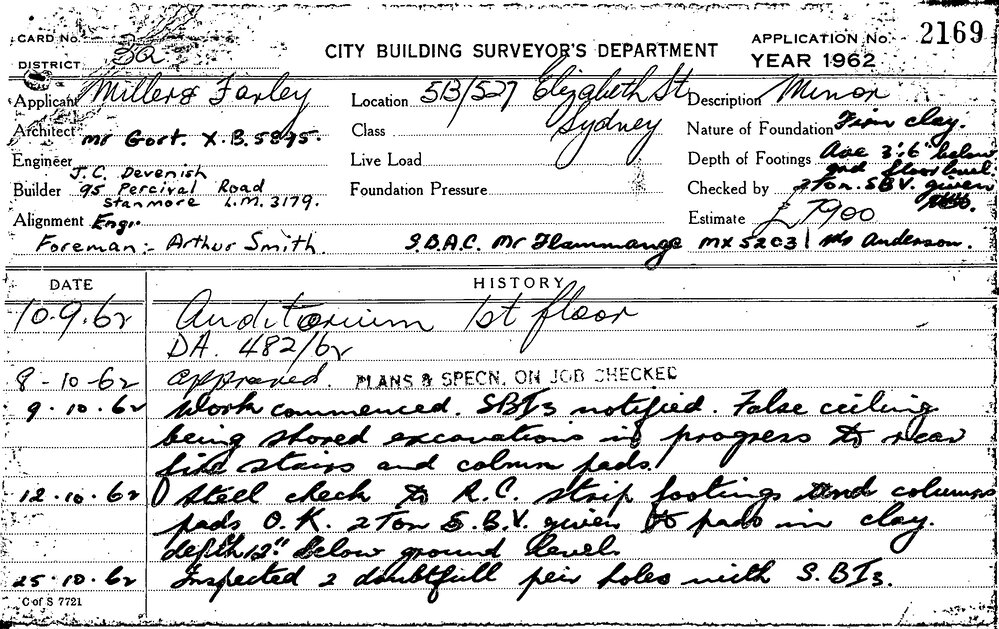 CARD No.
CITY BUILDING SURVEYOR'S DEPARTMENT
APPLICATION No. 2169
DISTRICT 2a
YEAR 1962
Applicant Miller & Farley
Location 513/527 Elizabeth St
Sydney
Description Minor
Architect Mr Gort. X.B.5895.
Class
Nature of Foundation Firm clay.
Engineer J.C. Devenish
Live Load
Depth of Footings Ave 3'.6" below
gnd floor level.
Builder 95 Percival Road
Stanmore L.M. 3179.
Foundation Pressure
Checked by 2 Ton. S.B.V. given
Alignment Engr.
Estimate £7900
Foreman :- Arthur Smith. S.B.A.C. Mr Flammange MX 5203 Mr Anderson.
DATE HISTORY
10.9.62 Auditorium 1st floor
DA. 482/62
8-10-62 approved. PLANS & SPECN. ON JOB CHECKED
9.10.62 Work commenced. SBI3 notified. False ceiling
being stored excavations in progress to rear
fire stairs and column pads.
12.10.62 Steel check to R.C. strip footings and columns
pads O.K. 2 Ton S.B.V. given to pads in clay.
depth 12" below ground level.
25.10.62 Inspected 2 doubtfull peir holes with S.BI3.
C of S 7721